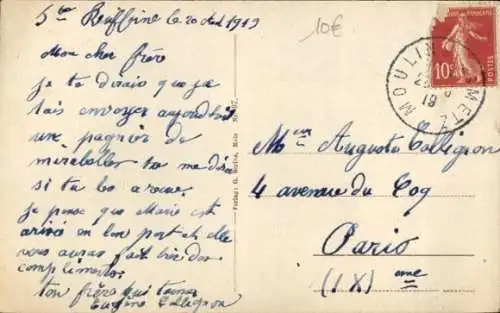 Ste Ruffine le 20 Août 1919
10€
Mon cher frère
Je te dirais que je
fais envoyer aujourd'hui
une pagnier de
mirabelles tu me diras
si tu les a reçue.
Je pense que Marie est
arrivé en bon port et elle
vous auras fait bien des
compliments.
ton frère qui t'aime
Eugène Collignon
MOULIN METZ
19
10c
POSTES
Meur Auguste Collignon
4 avenue du Coq
Paris
(IX) eme